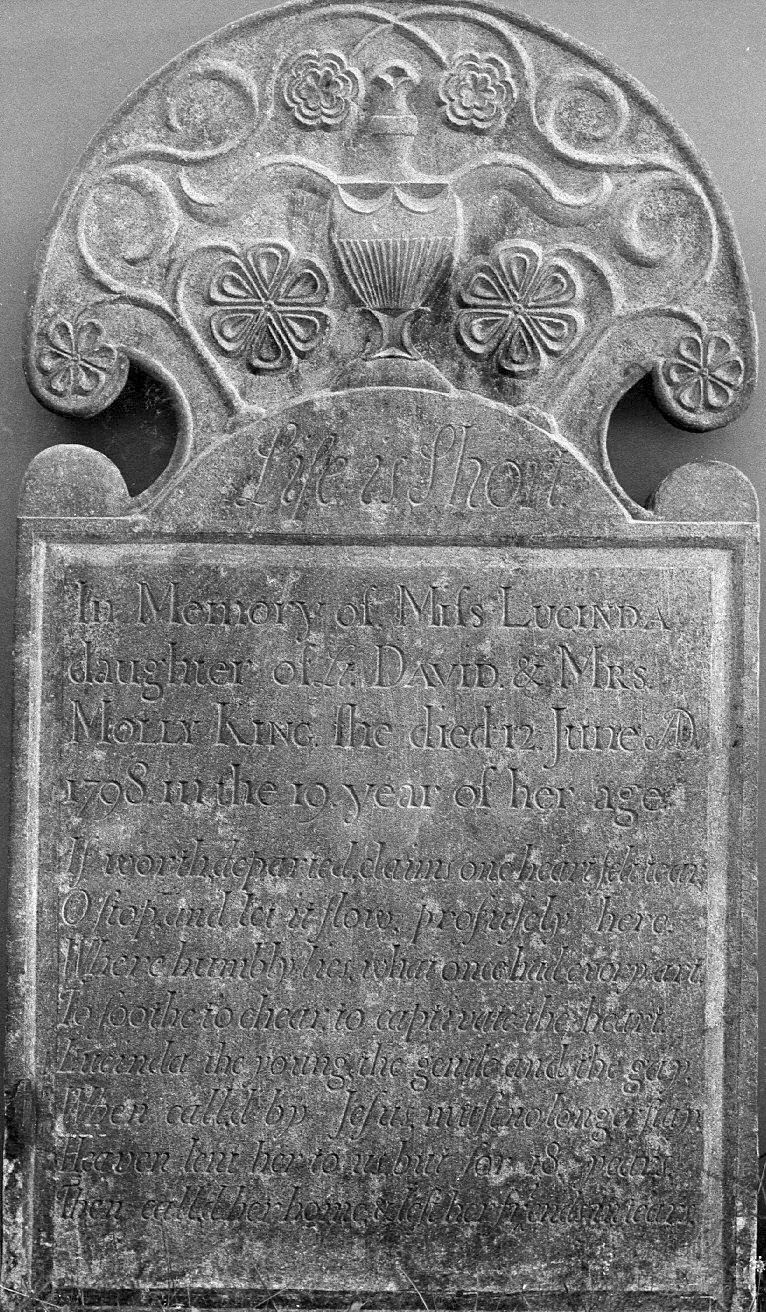 Life is Short.
In Memory of Miſs LUCINDA
daughter of Lt. DAVID. & MRS.
MOLLY KING. ſhe died 12. June AD.
1798. in the 19. year of her age.
If worth, departed, claims one heart felt tear;
O ſtop, and let it flow, profuſely here.
Where humbly lies, what once had every art
To ſoothe to chear, to captivate the heart.
Lucinda the young, the gentle and the gay,
When call,d by Jeſus, muſt no longer ſtay.
Heaven lent her to us but for 18 years,
Then call,d her home, & left her friends in tears.